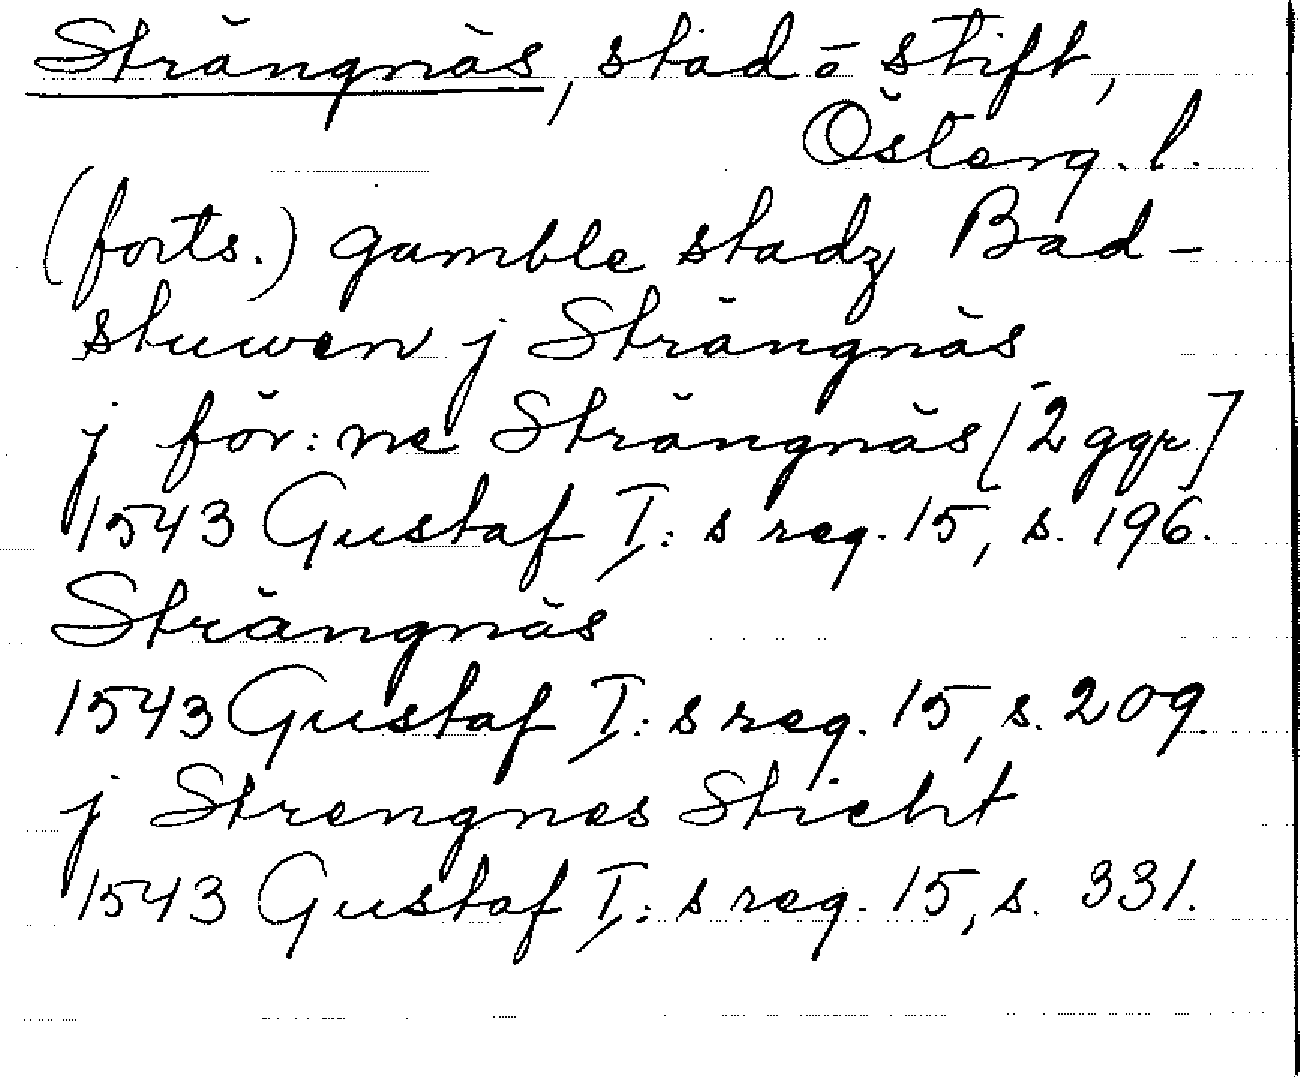 Strängnäs, stad o stift,
Österg. l.
(forts.) gamble stadz Bad-
stuwen j Strängnäs
j för:ne Strängnäs [2 ggr]
1543 Gustaf I:s reg. 15, s. 196.
Strängnäs
1543 Gustaf I:s reg. 15, s. 209.
j Strengnes Sticht
1543 Gustaf I:s reg. 15, s. 331.